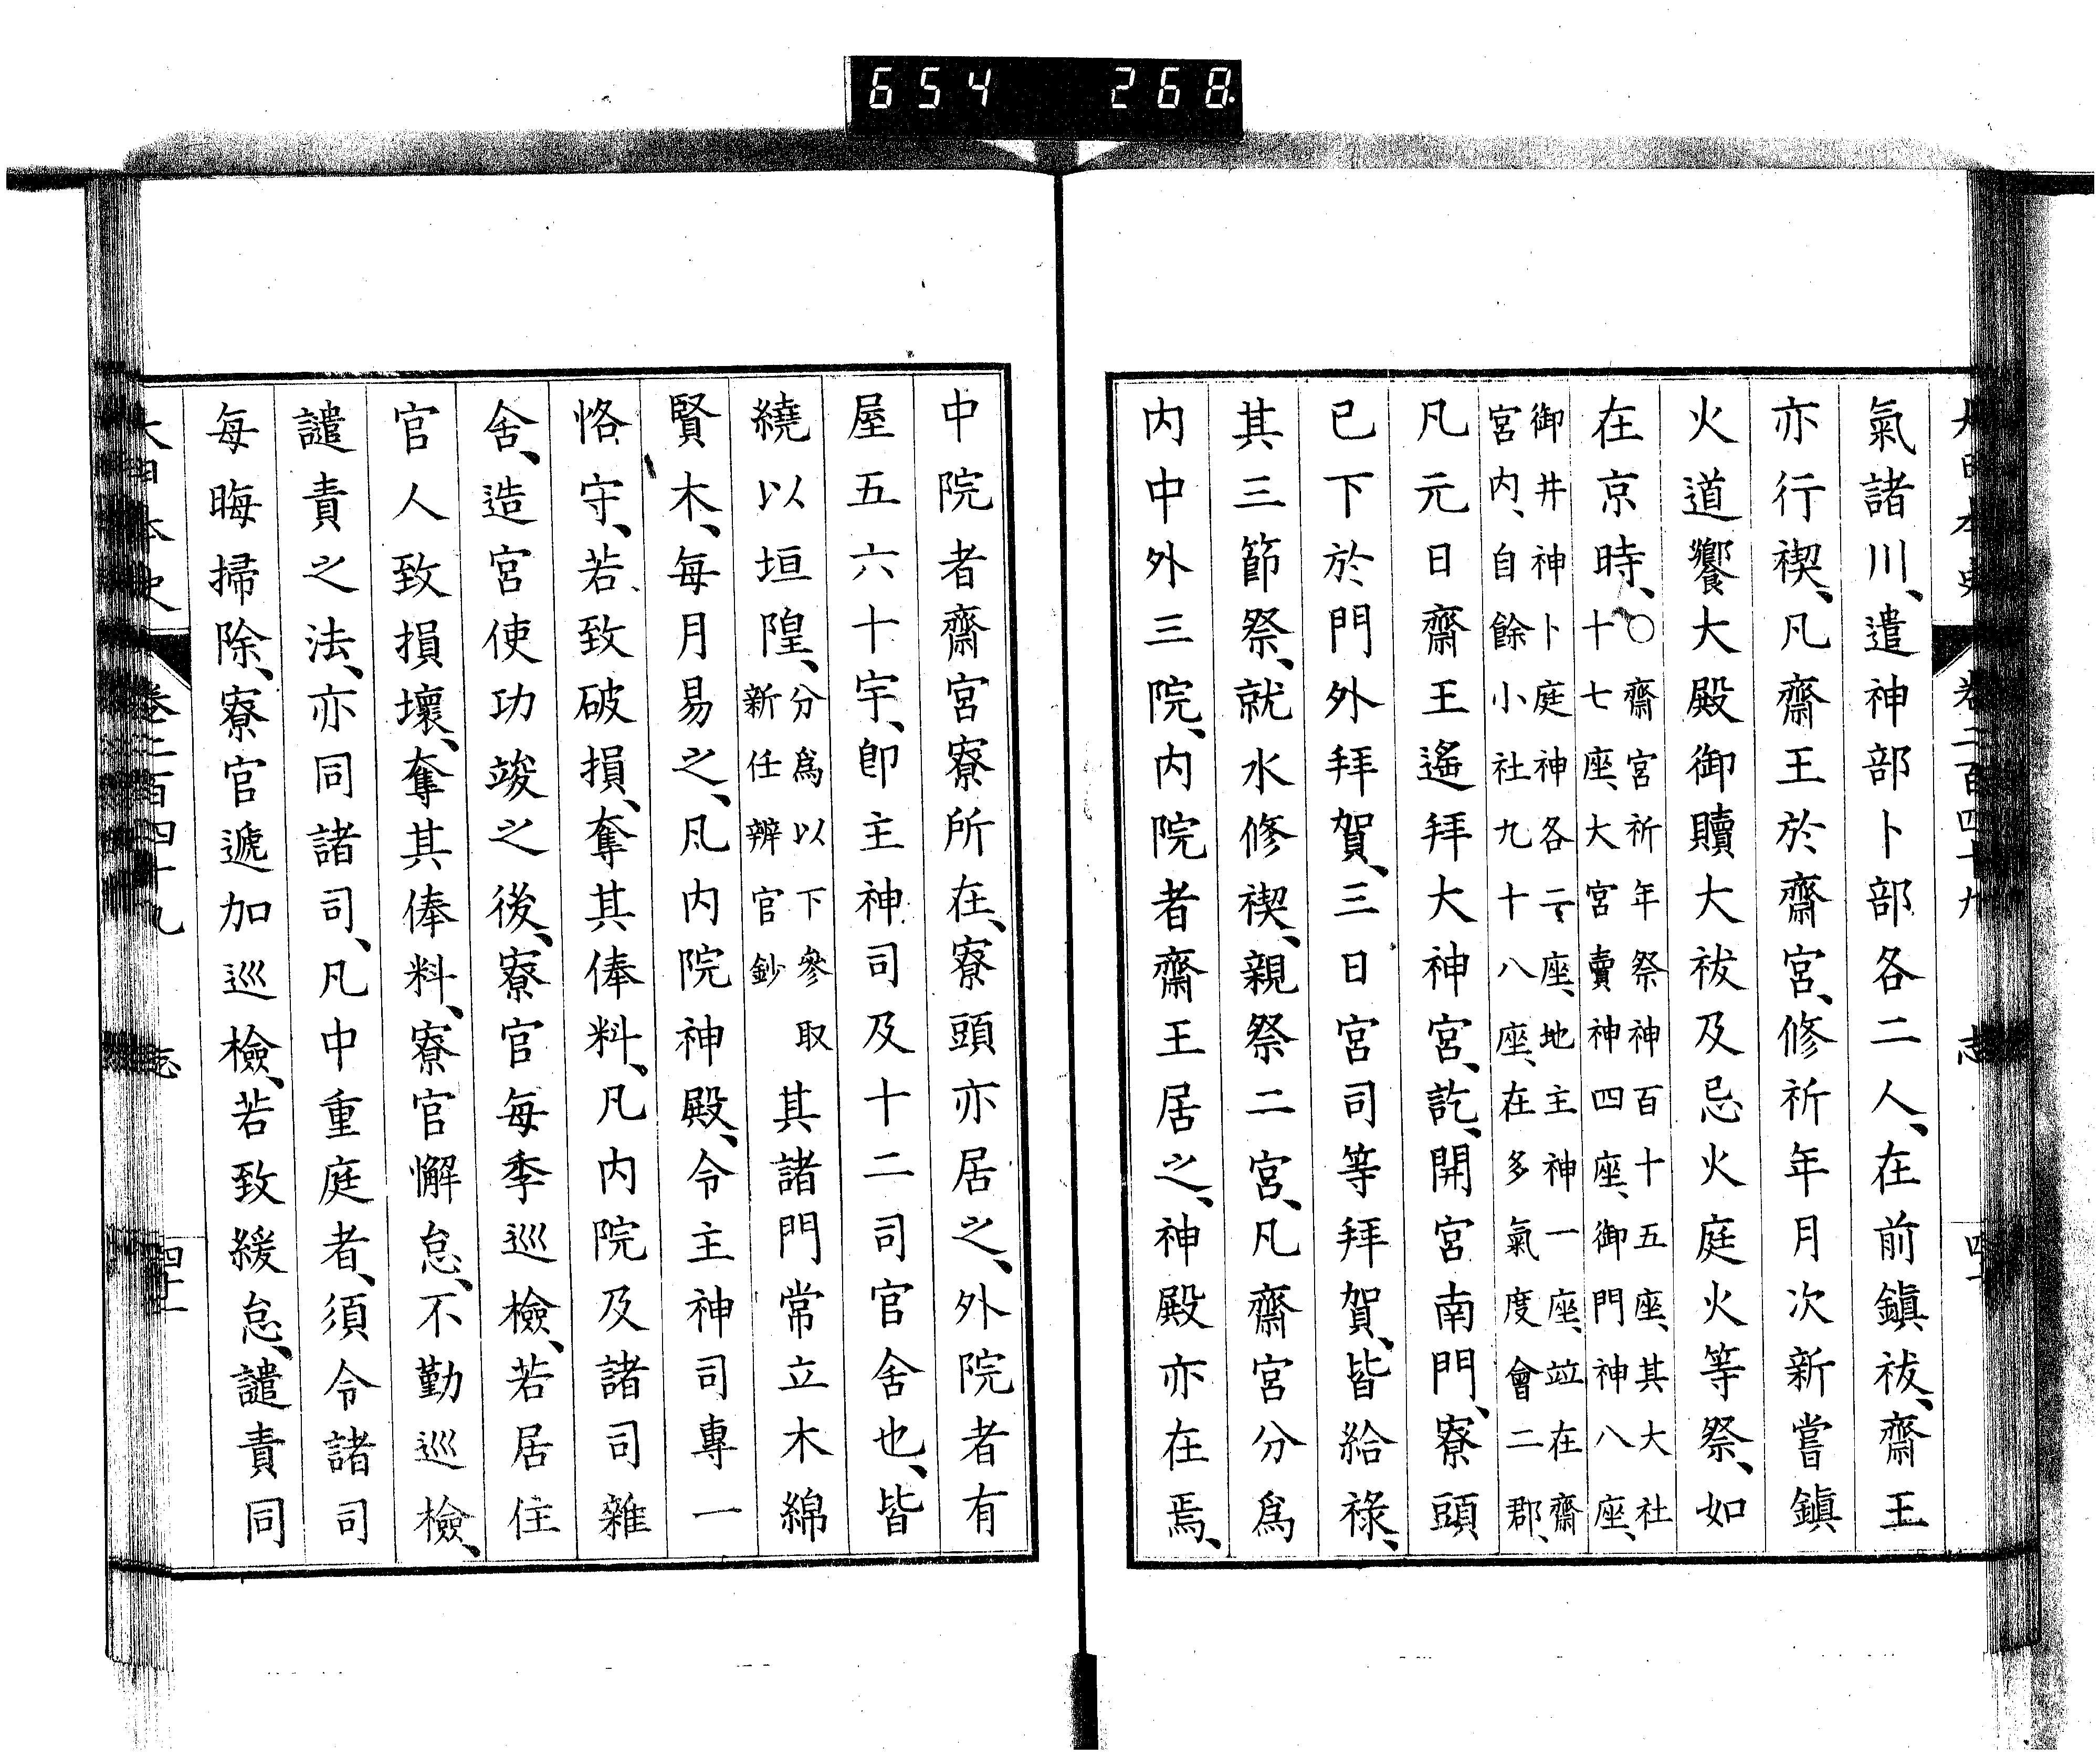 654 268
大日本史 卷二百四十九 志
氣諸川、遣神部卜部各二人、在前鎭祓、齋王
亦行禊、凡齋王於齋宮、修祈年月次新嘗鎭
火道饗大殿御贖大祓及忌火庭火等祭、如
在京時、○齋宮祈年祭神百十五座、其大社十七座、大宮賣神四座、御門神八座、
御井神卜庭神各二座、地主神一座、竝在齋宮内、自餘小社九十八座、在多氣度會二郡、
凡元日齋王遙拜大神宮、訖、開宮南門、寮頭
已下於門外拜賀、三日宮司等拜賀、皆給祿、
其三節祭、就水修禊、親祭二宮、凡齋宮分爲
内中外三院、内院者齋王居之、神殿亦在焉、
中院者齋宮寮所在、寮頭亦居之、外院者有
屋五六十宇、卽主神司及十二司官舍也、皆
繞以垣隍、分爲以下參取新任辨官鈔其諸門常立木綿
賢木、每月易之、凡内院神殿、令主神司專一
恪守、若致破損、奪其俸料、凡内院及諸司雜
舍、造宮使功竣之後、寮官每季巡檢、若居住
官人致損壞、奪其俸料、寮官懈怠、不勤巡檢、
譴責之法、亦同諸司、凡中重庭者、須令諸司
每晦掃除、寮官遞加巡檢、若致緩怠、譴責同
大日本史 卷二百四十九 志 四十一